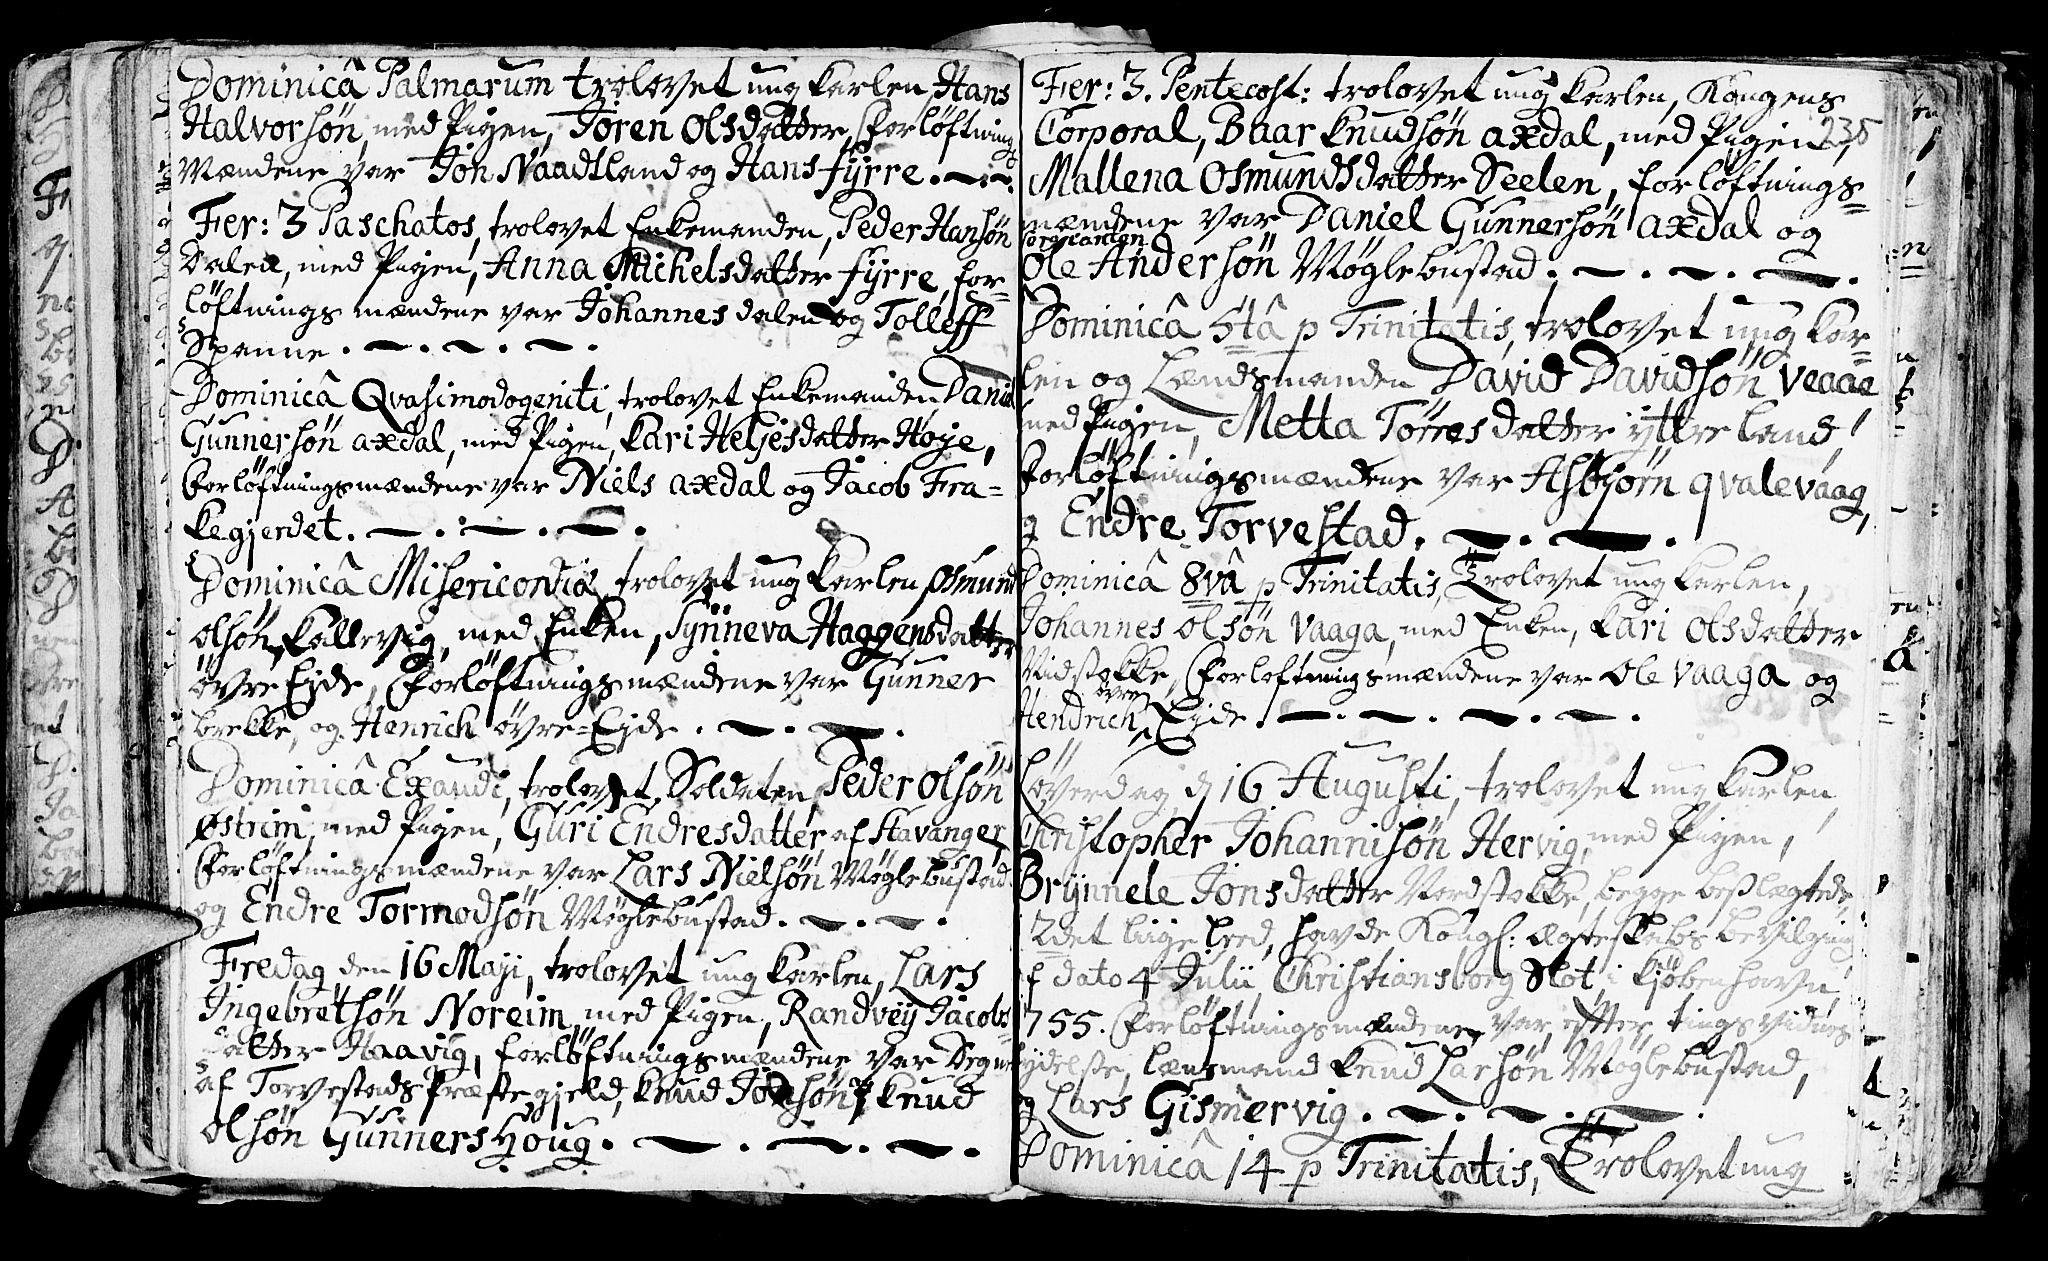 Dominicâ Palmarum trolovet ung karlen, Hans
Halvorsøn, med Pigen, Jören Olsdatter, forløftnings
Mændene var Jon Naadland og Hans fÿrre.
Fer: 3 Paschatos, trolovet Enkemanden, Peder Hansøn
Dalen, med Pigen, Anna Michelsdatter fÿrre, for=
løftnings mændene var Johannes dalen og Tolleff
Spanne.
Dominicâ Qvasimodogeniti, trolovet Enkemanden Daniel
Gunnersøn axdal, med Pigen, Kari Heljesdatter Høje,
forløftningsmændene var Niels axdal og Jacob Fra=
kegjerdet.
Dominicâ Misericordiâ, trolovet ung karlen, Osmund
Olsøn Kallevig, med Enken, Sÿnneva Haggensdatter
øvre Eyde, forløftningsmændene var Gunner
brekke, og Henrich øvre=Eyde.
Dominicâ Exaudi, trolovet Soldaten, Peder Olsøn
Østrim, med Pigen, Guri Endresdatter af Stavanger,
forløftningsmændene var Lars Nielsøn Møglebustad
og Endre Tormodsøn Møglebustad.
Fredag den 16 Maji, trolovet ung karlen, Lars
Ingebretsøn Noreim, med Pigen, Randveÿ Jacobs=
datter Haavig, forløftningsmændene var
af Torvestads Præstegjeld, Knud Jonsøn & Knud
Olsøn Gunnershoug.
235
Fer: 3. Pentecost: trolovet ung karlen, Kongens
Corporal, Baar Knudsøn axdal, med Pigen,
Mallena Osmundsdatter Seelen, forløftnings=
mændene var Daniel Gunnersøn axdal og
Sergeanten
Ole Andersøn Møglebustad.
Dominicâ 5tâ p Trinitatis, trolovet ung kar=
len og Lændsmanden David Davidsøn Veaae
med Pigen, Metta Törresdatter ÿttreland,
forløftningsmændene var Asbjørn qvalevaag,
og Endre Torvestad.
Dominicâ 8vâ p Trinitatis, Trolovet ung karlen,
Johannes Olsøn Vaaga, med Enken, Kari Olsdatter
Vidstokke, forløftningsmændene var Ole Vaaga og
øvre
Hendrich Eyde.
Løverdag, d 16 Augusti, trolovet ung karlen
Christopher Johannisøn Hervig, med Pigen,
Brÿnnele Jonsdatter Nordstokke, begge beslægtede
2det liige leed, havde Kongl: ægteskabs bevilging
af dato 4 Julii Christiansborg Slot i Kjøbenhavn
1755. forløftningsmændene var, efter tingsvidnes
ydelse, lænsmand Knud Larsøn Møglebustad,
og Lars Gismervig.
Dominicâ 14 p Trinitatis, Trolovet ung